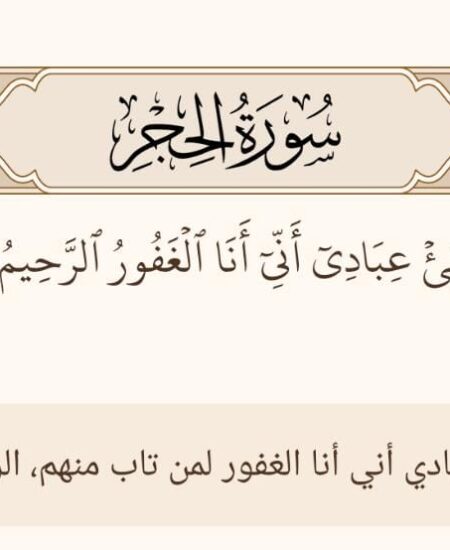 سُورَةُ الحِجْرِ
عِبَادِىٓ أَنِّىٓ أَنَا ٱلْغَفُورُ ٱلرَّحِيمُ
أني أنا الغفور لمن تاب منهم،